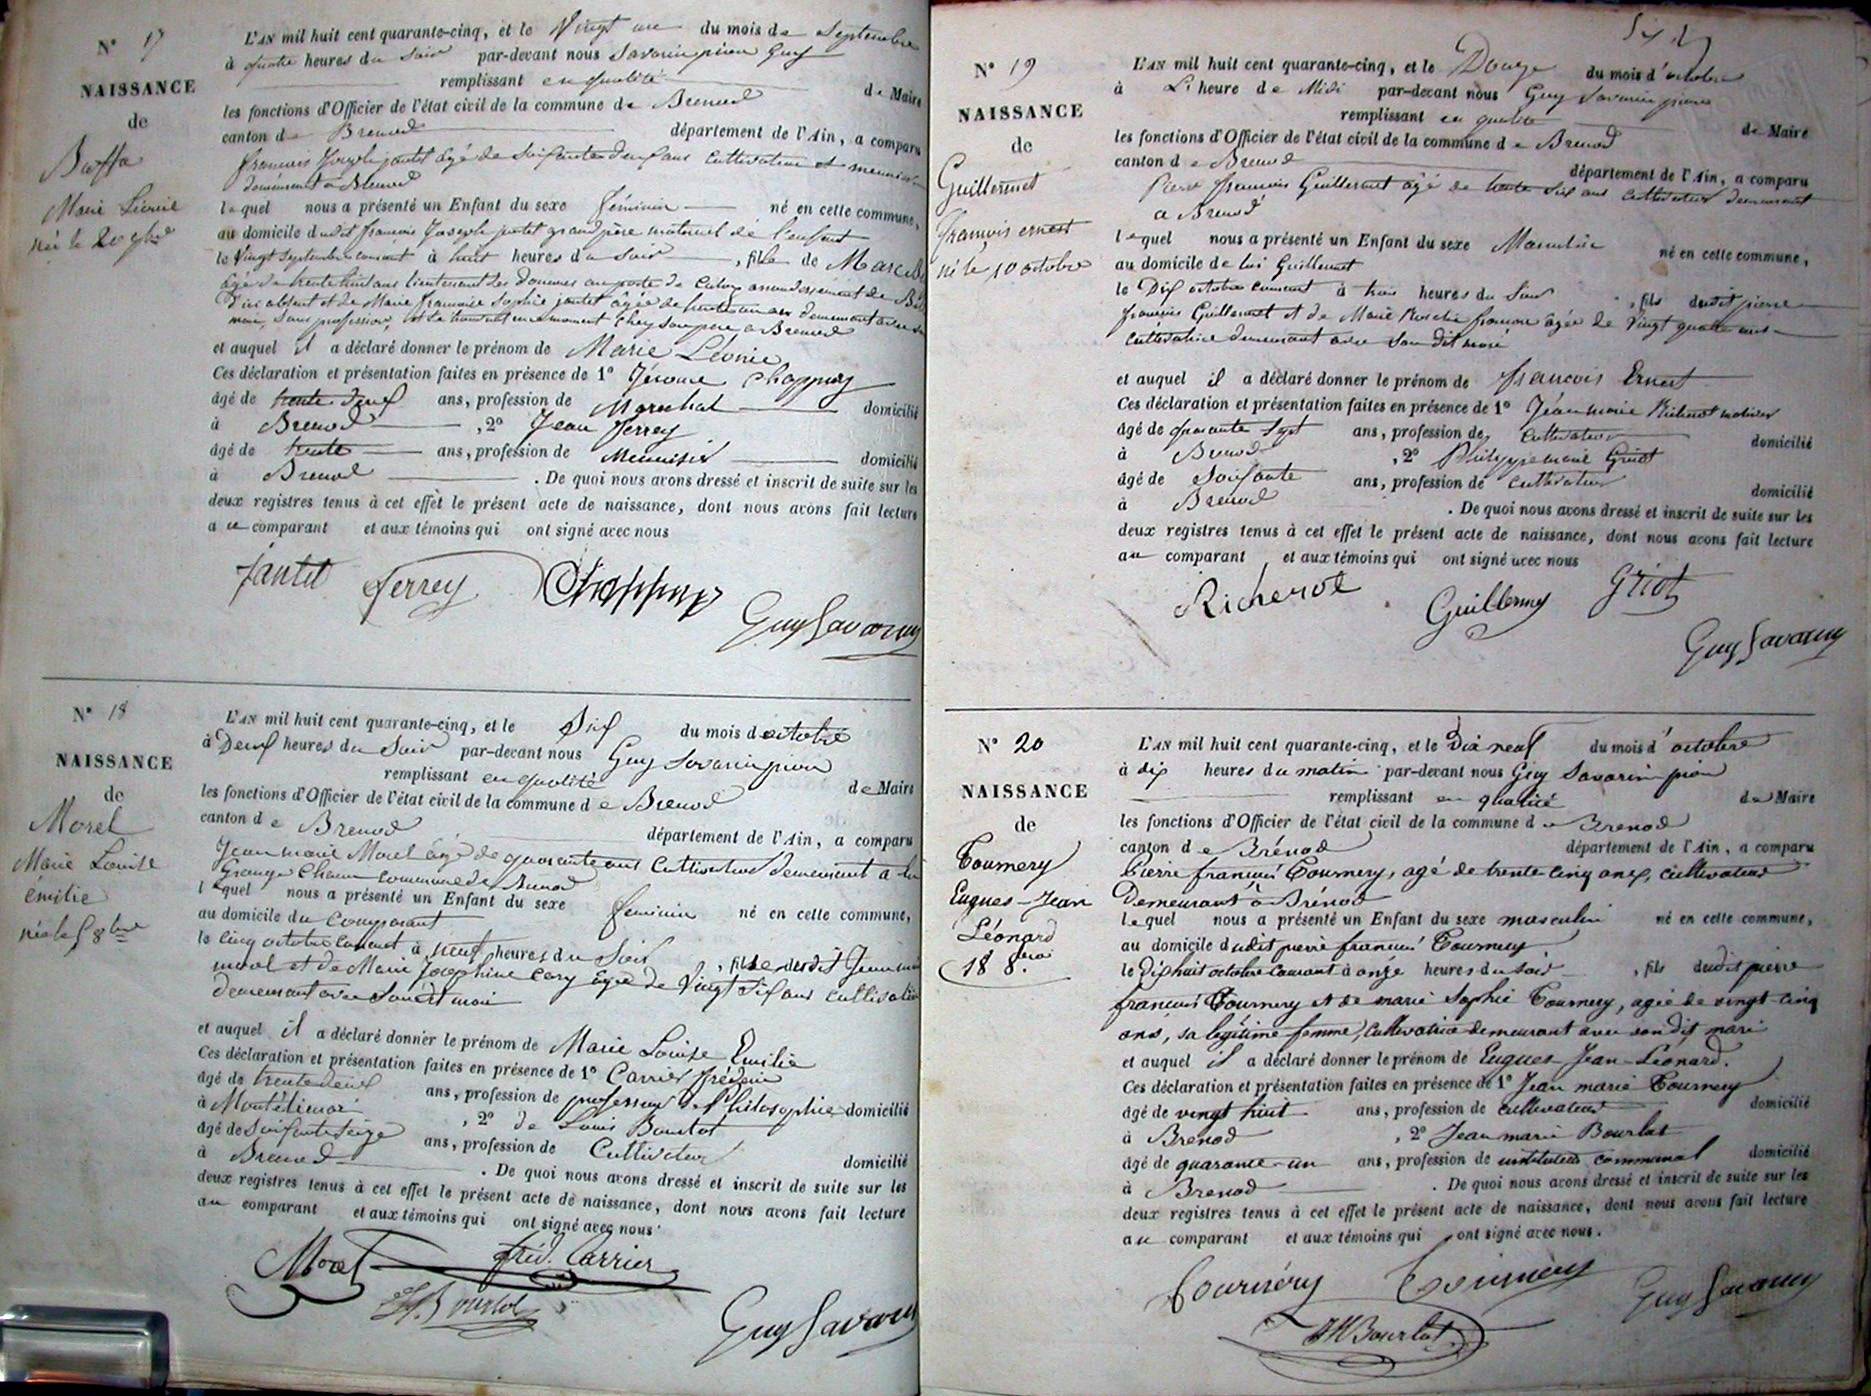 N° 17
NAISSANCE
de
Buffa
Marie Léonie
née le 20 7bre
L'AN mil huit cent quarante-cinq, et le Vingt un du mois de Septembre
à quatre heures du Soir par-devant nous Savarin pion Guy
remplissant en qualité de Maire
les fonctions d'Officier de l'état civil de la commune de Brenod
canton de Brenod département de l'Ain, a comparu
françois Joseph jantet âgé de Soixante deux ans cultivateur et meunier
demeurant à Brenod
lequel nous a présenté un Enfant du sexe féminin né en cette commune,
au domicile dudit françois Joseph jantet grand père maternel de l'enfant
le Vingt Septembre courant à huit heures du Soir, fille de Marc
âgé de trente huit ans lieutenant des Douanes au poste de arrondissement de
absent et de Marie françoise Sophie jantet âgée de trente un ans demeurant avec son
mari, sans profession, et se trouvant en ce moment chez son père à Brenod
et auquel il a déclaré donner le prénom de Marie Léonie
Ces déclaration et présentation faites en présence de 1° Jérome Chappuy
âgé de trente deux ans, profession de Marechal domicilié
à Brenod, 2° Jean ferrey
âgé de trente ans, profession de Menuisier domicilié
à Brenod. De quoi nous avons dressé et inscrit de suite sur les
deux registres tenus à cet effet le présent acte de naissance, dont nous avons fait lecture
au comparant et aux témoins qui ont signé avec nous
Jantet ferrey Chappuy
Guy Savarin
N° 18
NAISSANCE
de
Morel
Marie Louise
émilie
née le 5 8bre
L'AN mil huit cent quarante-cinq, et le Six du mois d'octobre
à Deux heures du Soir par-devant nous Guy Savarin pion
remplissant en qualité de Maire
les fonctions d'Officier de l'état civil de la commune de Brenod
canton de Brenod département de l'Ain, a comparu
Jean marie Morel âgé de quarante ans Cultivateur demeurant à la
Grange commune de Brenod
lequel nous a présenté un Enfant du sexe feminin né en cette commune,
au domicile du Comparant
le cinq octobre courant à neuf heures du Soir, fille dudit Jean marie
morel et de Marie Josephine Cary âgée de Vingt Six ans cultivatrice
demeurant avec Son dit mari
et auquel il a déclaré donner le prénom de Marie Louise Emilie
Ces déclaration et présentation faites en présence de 1° Carrier fréderic
âgé de trente deux ans, profession de professeur de Philosophie domicilié
à Montélimar, 2° de Louis Bourlot
âgé de Soixante Seize ans, profession de Cultivateur domicilié
à Brenod. De quoi nous avons dressé et inscrit de suite sur les
deux registres tenus à cet effet le présent acte de naissance, dont nous avons fait lecture
au comparant et aux témoins qui ont signé avec nous
Morel fréd. Carrier
Bourlot
Guy Savarin
N° 19
NAISSANCE
de
Guillermet
françois ernest
né le 10 octobre
L'AN mil huit cent quarante-cinq, et le Douze du mois d'octobre
à L' heure de Midi par-devant nous Guy Savarin pion
remplissant en qualité de Maire
les fonctions d'Officier de l'état civil de la commune de Brenod
canton de Brenod département de l'Ain, a comparu
Pierre françois Guillermet âgé de trente Six ans cultivateur demeurant
à Brenod
lequel nous a présenté un Enfant du sexe Masculin né en cette commune,
au domicile de lui Guillermet
le Dix octobre courant à trois heures du Soir, fils dudit pierre
françois Guillermet et de Marie françoise âgée de Vingt quatre ans
cultivatrice demeurant avec Son dit mari
et auquel il a déclaré donner le prénom de françois Ernest
Ces déclaration et présentation faites en présence de 1° Jean marie
âgé de quarante Sept ans, profession de cultivateur domicilié
à Brenod, 2° Philippe marie Griot
âgé de Soixante ans, profession de cultivateur domicilié
à Brenod. De quoi nous avons dressé et inscrit de suite sur les
deux registres tenus à cet effet le présent acte de naissance, dont nous avons fait lecture
au comparant et aux témoins qui ont signé avec nous
Richerot Guillermet Griot
Guy Savarin
N° 20
NAISSANCE
de
Tournery
Eugues-Jean
Léonard
18 8bre
L'AN mil huit cent quarante-cinq, et le Dix neuf du mois d'octobre
à dix heures du matin par-devant nous Guy Savarin pion
remplissant en qualité de Maire
les fonctions d'Officier de l'état civil de la commune de Brenod
canton de Brénod département de l'Ain, a comparu
Pierre françois Tournery, agé de trente cinq ans, cultivateur
Demeurant à Brénod
lequel nous a présenté un Enfant du sexe masculin né en cette commune,
au domicile dudit pierre françois Tournery
le dix huit octobre courant à onze heures du soir, fils dudit pierre
françois Tournery et de marie Sophie Tournery, agée de vingt cinq
ans, sa légitime femme, cultivatrice demeurant avec son dit mari
et auquel il a déclaré donner le prénom de Eugues Jean-Léonard.
Ces déclaration et présentation faites en présence de 1° Jean marie Tournery
âgé de vingt huit ans, profession de cultivateur domicilié
à Brenod, 2° Jean marie Bourlot
âgé de quarante-un ans, profession de instituteur communal domicilié
à Brenod. De quoi nous avons dressé et inscrit de suite sur les
deux registres tenus à cet effet le présent acte de naissance, dont nous avons fait lecture
au comparant et aux témoins qui ont signé avec nous.
Tournéry Tournery
Guy Savarin
JM Bourlot